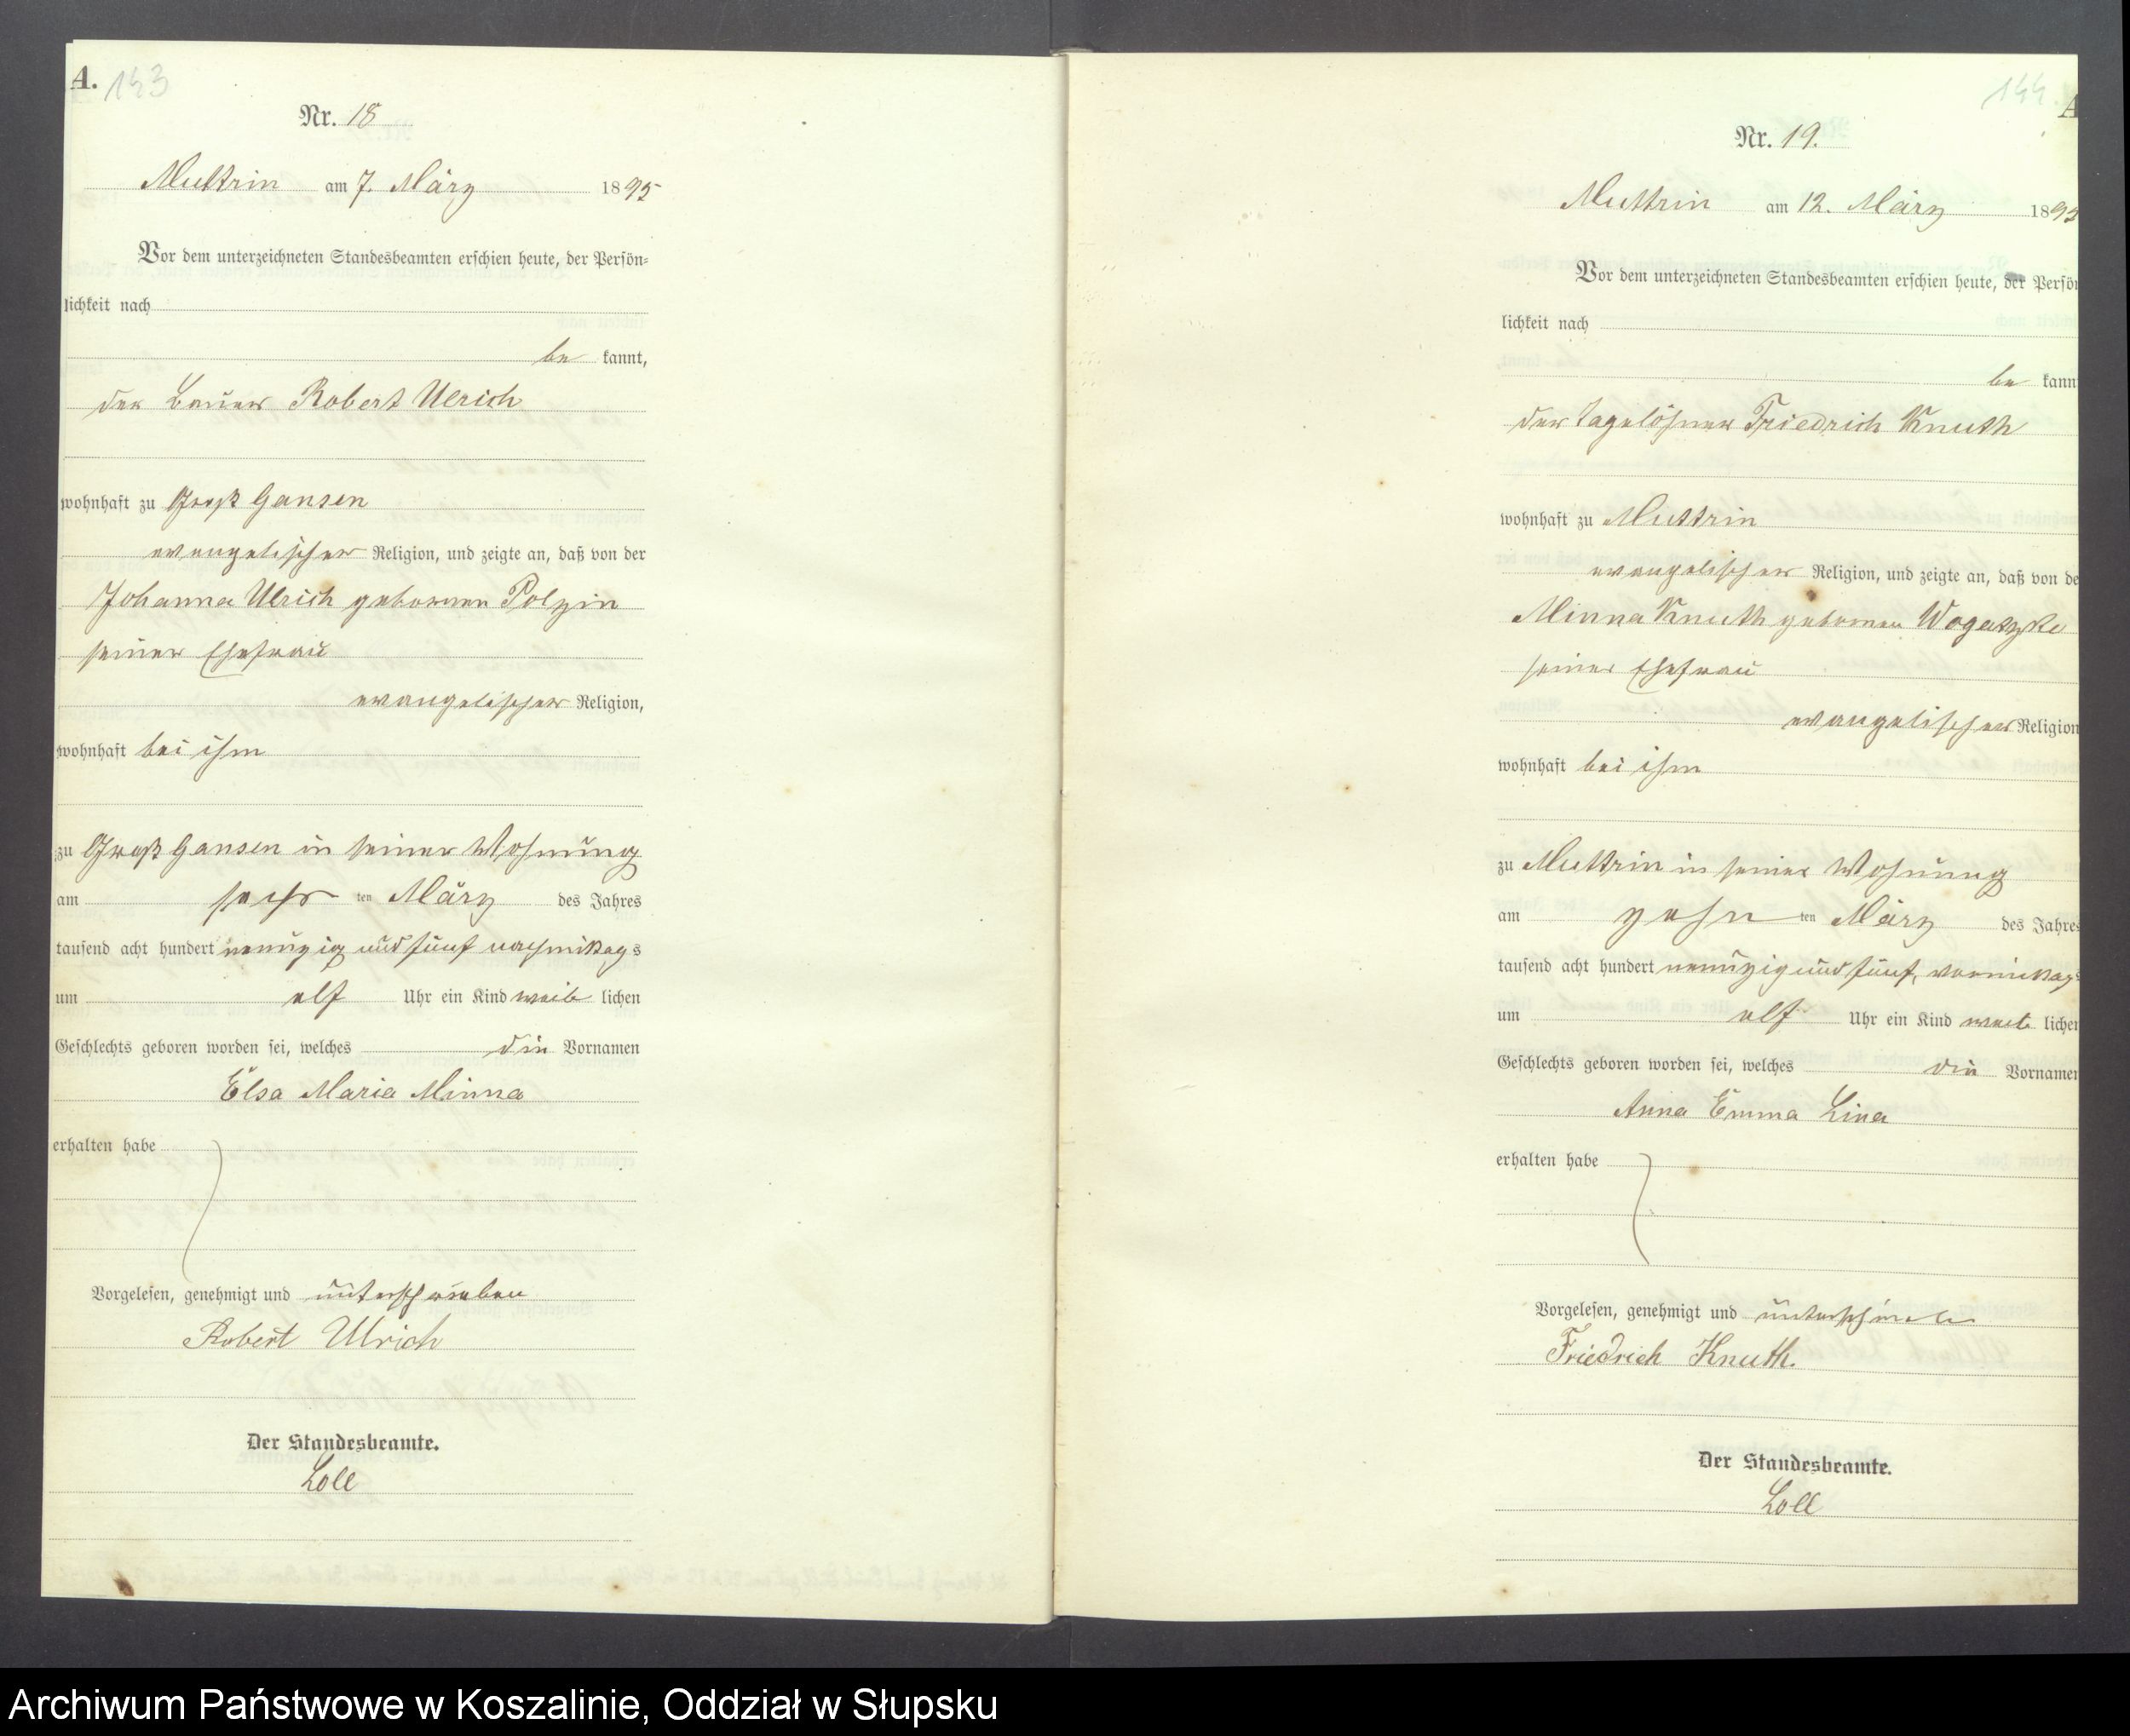 A. 143
Nr. 18
Muttrin am 7. März 1895
Vor dem unterzeichneten Standesbeamten erschien heute, der Persön-
lichkeit nach
be kannt,
der Bauer Robert Ulrich
wohnhaft zu Groß Gansen
evangelischer Religion, und zeigte an, daß von der
Johanna Ulrich gebornen Polzin
seiner Ehefrau
evangelischer Religion,
wohnhaft bei ihm
zu Groß Gansen in seiner Wohnung
am sechs ten März des Jahres
tausend acht hundert neunzig und fünf nachmittags
um elf Uhr ein Kind weib lichen
Geschlechts geboren worden sei, welches die Vornamen
Elsa Maria Minna
erhalten habe
Vorgelesen, genehmigt und unterschrieben
Robert Ulrich
Der Standesbeamte.
Loll
144 A
Nr. 19.
Muttrin am 12. März 1895
Vor dem unterzeichneten Standesbeamten erschien heute, der Persön
lichkeit nach
be kann
der Tagelöhner Friedrich Knuth
wohnhaft zu Muttrin
evangelischer Religion, und zeigte an, daß von de
Minna Knuth gebornen Wogatzke
seiner Ehefrau
evangelischer Religion
wohnhaft bei ihm
zu Muttrin in seiner Wohnung
am zehn ten März des Jahres
tausend acht hundert neunzig und fünf, vormittags
um elf Uhr ein Kind weib lichen
Geschlechts geboren worden sei, welches die Vornamen
Anna Emma Lina
erhalten habe
Vorgelesen, genehmigt und unterschrieben
Friedrich Knuth.
Der Standesbeamte.
Loll
Archiwum Państwowe w Koszalinie, Oddział w Słupsku